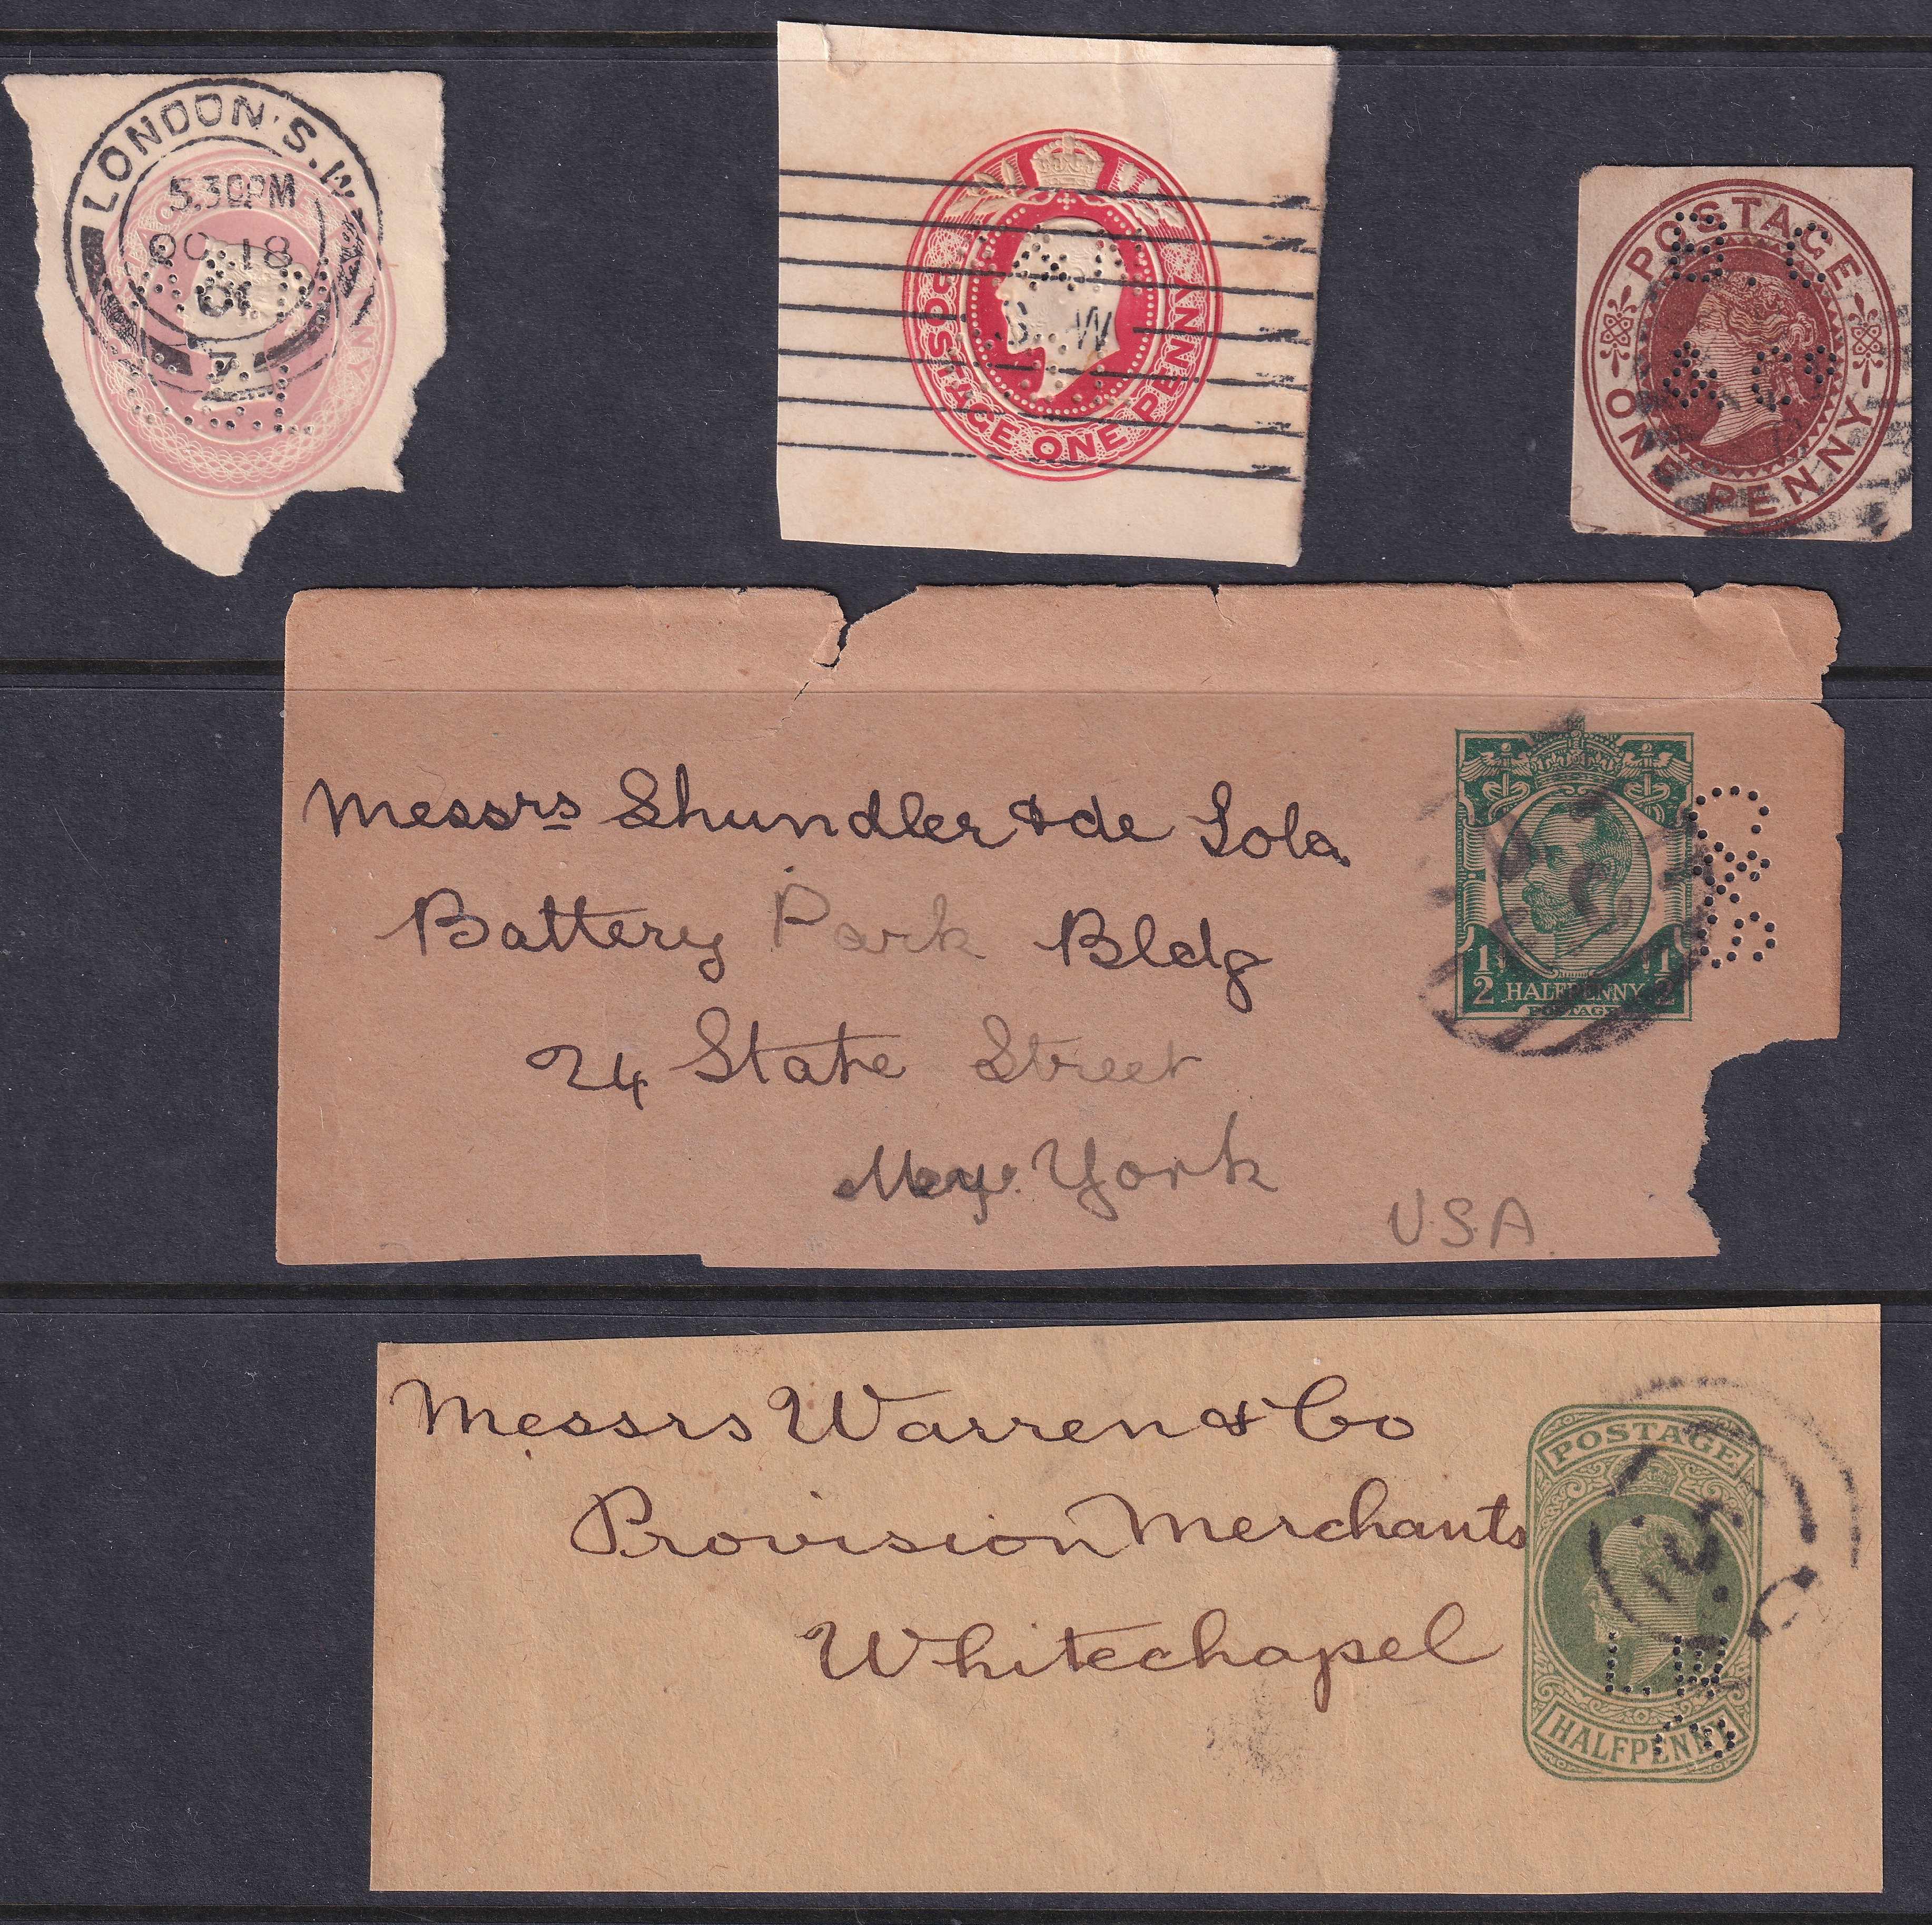 LONDON. S.W.
5.30PM
OC 18
01
POSTAGE ONE PENNY
S. W
POSTAGE
ONE PENNY
B.C
& Co
Messrs Shundler & de Sola
Battery Park Bldg
24 State Street
New York
U.S.A.
1/2 HALFPENNY 1/2
POSTAGE
Messrs Warren & Co
Provision Merchants
Whitechapel
POSTAGE
L.B
HALFPENNY